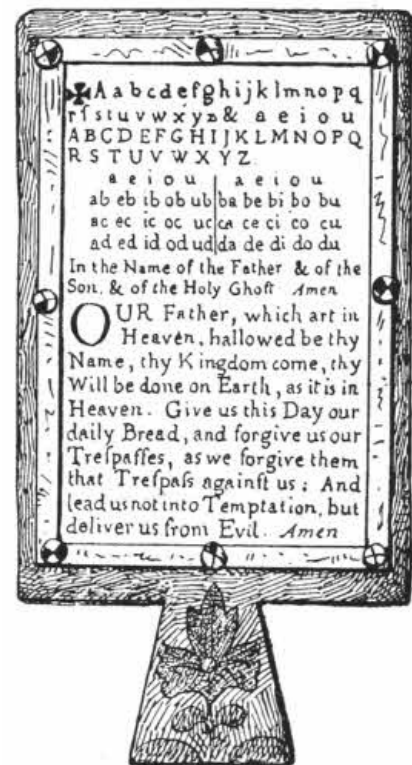 ✠Aabcdefghijklmnopq
rſstuvwxyz& aeiou
ABCDEFGHIJKLMNOPQ
RSTUVWXYZ
a e i o u | a e i o u
ab eb ib ob ub | ba be bi bo bu
ac ec ic oc uc | ca ce ci co cu
ad ed id od ud | da de di do du
In the Name of the Father & of the
Son, & of the Holy Ghoſt Amen
OUR Father, which art in
Heaven, hallowed be thy
Name, thy Kingdom come, thy
Will be done on Earth, as it is in
Heaven. Give us this Day our
daily Bread, and forgive us our
Treſpaſſes, as we forgive them
that Treſpaſs againſt us: And
lead us not into Temptation, but
deliver us from Evil. Amen